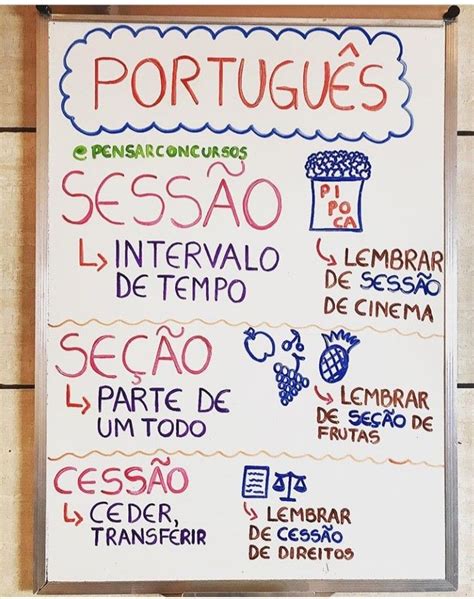 PORTUGUÊS
@PENSARCONCURSOS
SESSÃO
INTERVALO
DE TEMPO
PI
PO
CA
LEMBRAR
DE SESSÃO
DE CINEMA
SEÇÃO
PARTE DE
UM TODO
LEMBRAR
DE SEÇÃO DE
FRUTAS
CESSÃO
CEDER,
TRANSFERIR
LEMBRAR
DE CESSÃO
DE DIREITOS